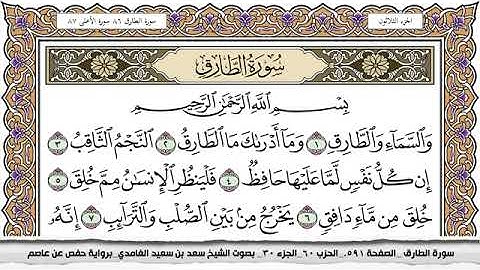 الجزء الثلاثون
سورة الطارق ٨٦ سورة الأعلى ٨٧
سُورَةُ الطَّارِقِ
بِسْمِ اللَّهِ الرَّحْمَٰنِ الرَّحِيمِ
وَالسَّمَاءِ وَالطَّارِقِ ١ وَمَا أَدْرَاكَ مَا الطَّارِقُ ٢ النَّجْمُ الثَّاقِبُ ٣
إِن كُلُّ نَفْسٍ لَّمَّا عَلَيْهَا حَافِظٌ ٤ فَلْيَنظُرِ الْإِنسَانُ مِمَّ خُلِقَ ٥
خُلِقَ مِن مَّاءٍ دَافِقٍ ٦ يَخْرُجُ مِن بَيْنِ الصُّلْبِ وَالتَّرَائِبِ ٧ إِنَّهُ
سورة الطارق _الصفحة ٥٩١_ الحزب ٦٠_ الجزء ٣٠_ بصوت الشيخ سعد بن سعيد الغامدي_ برواية حفص عن عاصم